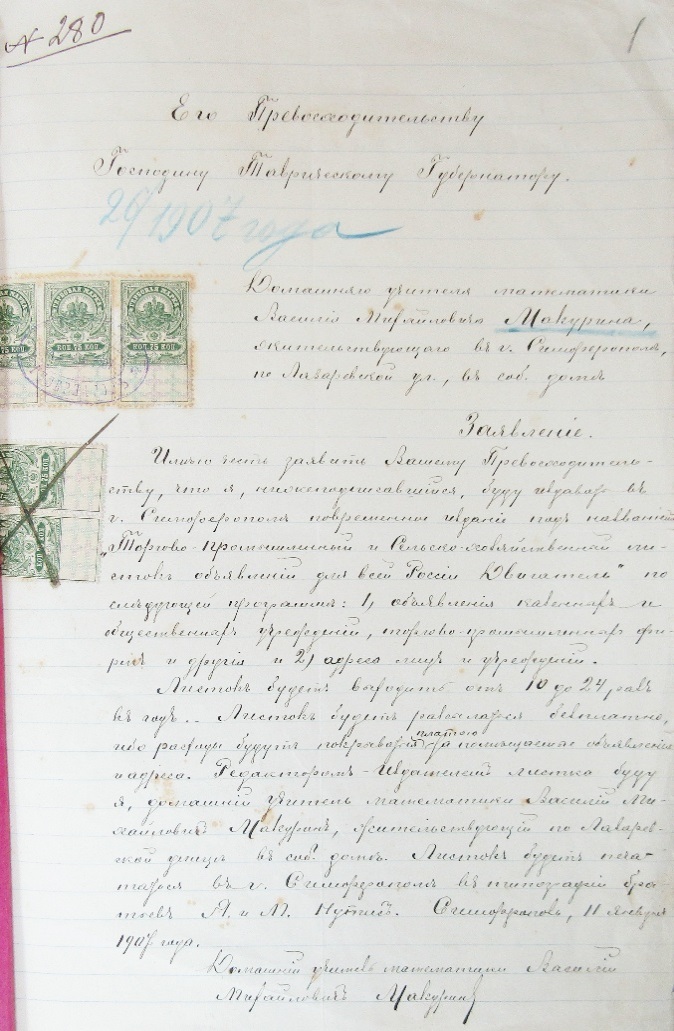 № 280
1
Его Превосходительству
Господину Таврическому Губернатору.
20/1907 года
Домашняго учителя математики
Василія Михайловича Макурина,
жительствующаго въ г. Симферополѣ,
по Лазаревской ул., въ соб. домѣ
КОП 75 КОП
КОП 75 КОП
КОП 75 КОП
Заявленіе.
Имѣю честь заявить Вашему Превосходитель-
ству, что я, нижеподписавшійся, буду издавать въ
г. Симферополѣ повременное изданіе подъ названіем
„Торгово-промышленный и Сельско-хозяйственный ли-
стокъ объявленій для всей Россіи Двигатель" по
слѣдующей программѣ: 1) объявленія казенныхъ и
общественныхъ учрежденій, торгово-промышленныхъ фи-
рмъ и другія и 2) адреса лицъ и учрежденій.
Листокъ будетъ выходить отъ 10 до 24 разъ
въ годъ.. Листокъ будетъ разсылаться безплатно,
ибо расходы будутъ покрываться платою за помѣщаемыя объявленія
и адреса. Редакторомъ-Издателемъ листка буду
я, домашній учитель математики Василій Ми-
хайловичъ Макуринъ, жительствующій по Лазарев-
ской улицѣ въ соб. домѣ. Листокъ будетъ печа-
таться въ г. Симферополѣ въ типографіи бра-
тьевъ А. и М. Симферополь, 11 января
1907 года.
Домашній учитель математики Василій
Михайловичъ Макуринъ